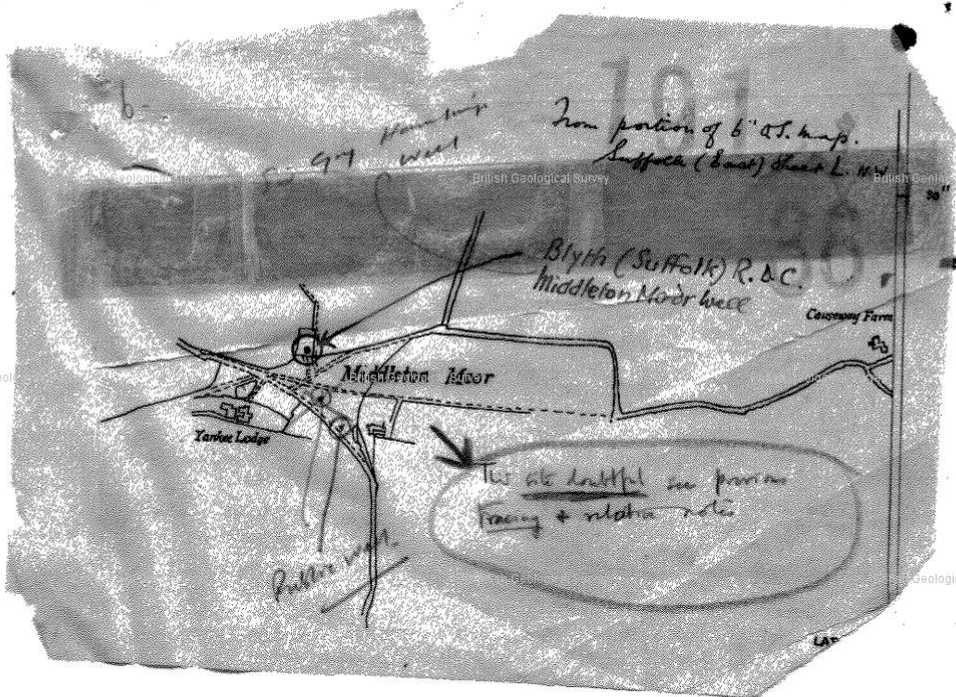 191
From portion of 6" O.S. map.
Suffolk (East) Sheet L. N.W
well
British Geological Survey
30"
Blyth (Suffolk) R.D.C.
Middleton Moor Well
Causeway Farm
Middleton Moor
Yankee Lodge
This site doubtful see previous
Tracing + relative notes
Public well